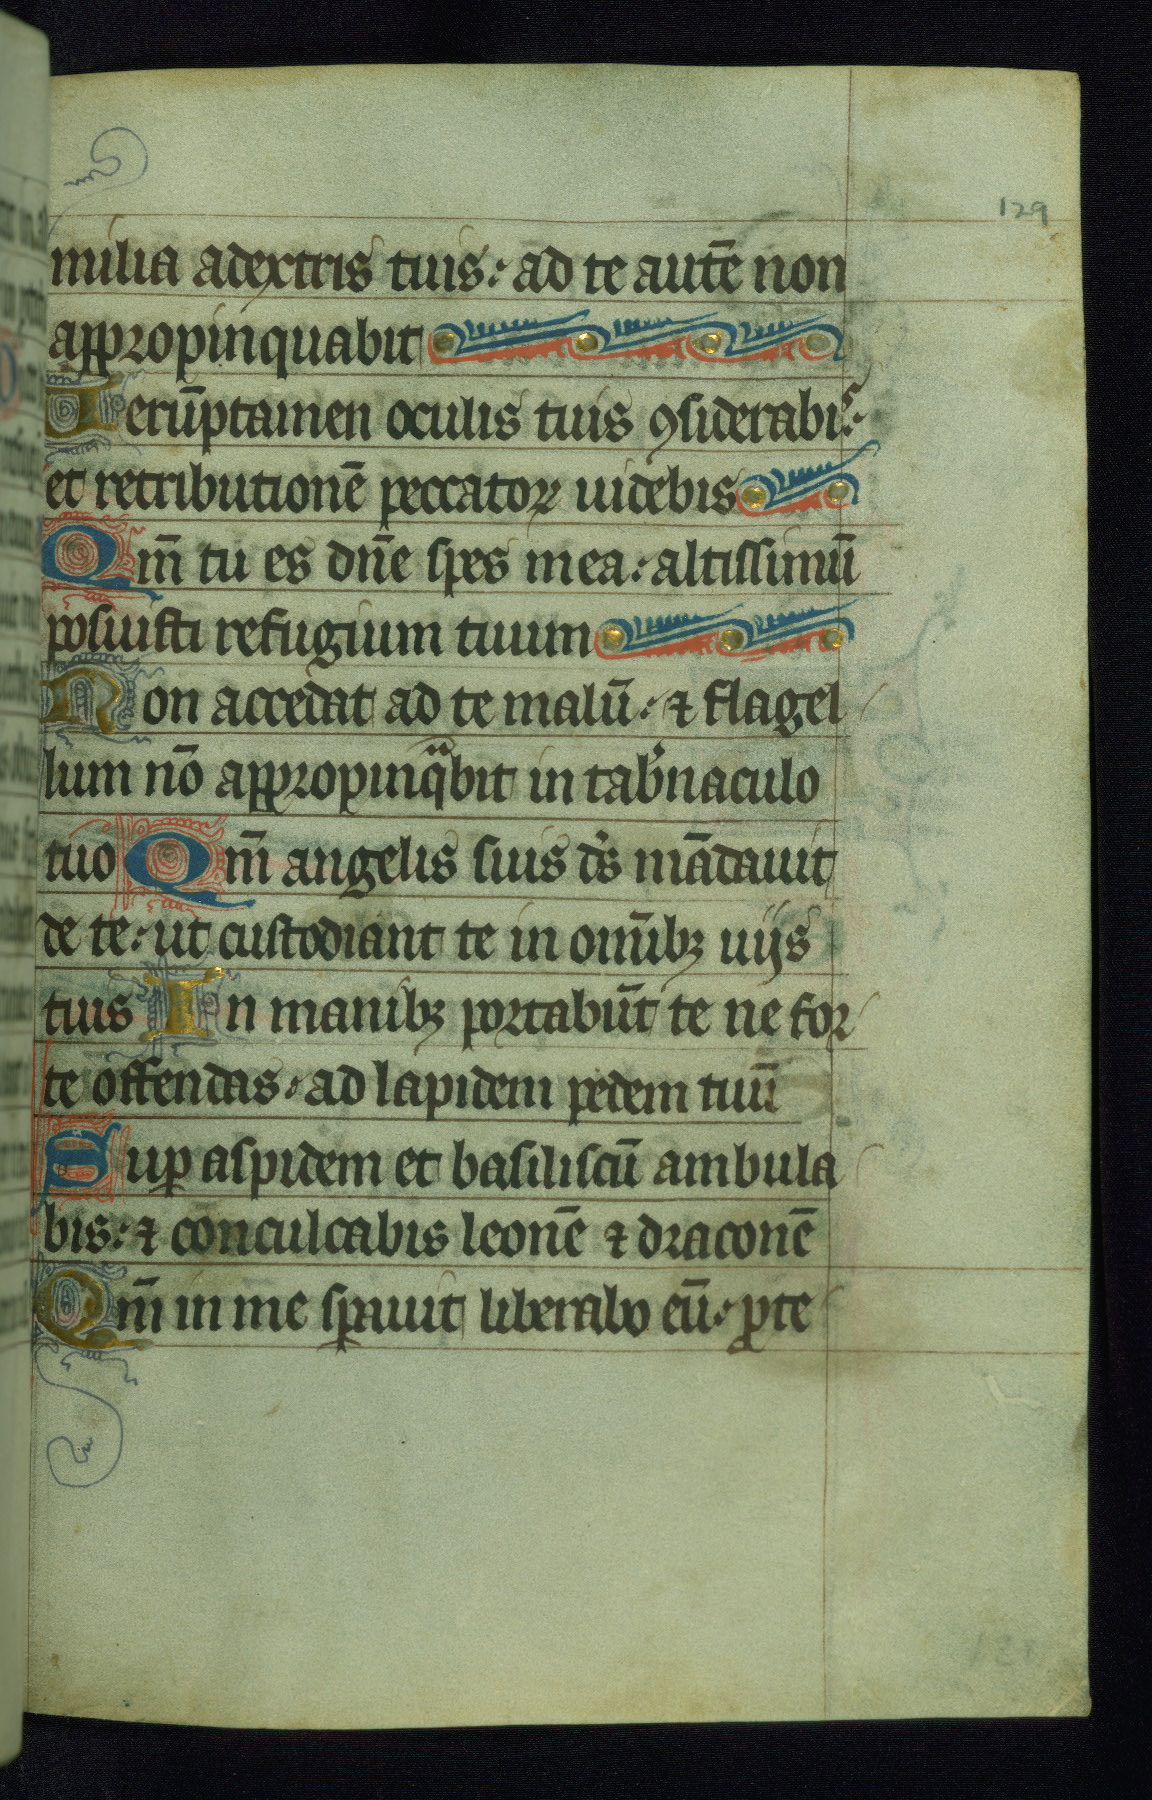 129
milia adextris tuis: ad te autē non
appropinquabit
Uerūptamen oculis tuis ꝯsiderabis:
et retributionē peccatoꝝ uidebis
Qm̄ tu es dn̄e spes mea: altissimū
posuisti refugium tuum
Non accedat ad te malū: ⁊ flagel
lum nō appropinqᵃbit in tab̓naculo
tuo Qm̄ angelis suis ds̄ mādauit
de te: ut custodiant te in omībꝫ uijs
tuis In manibꝫ portabūt te ne for
te offendas: ad lapidem pedem tuū
Suꝑ aspidem et basiliscū ambula
bis: ⁊ conculcabis leonē ⁊ draconē
Qm̄ in me sꝑauit liberabo eū: ꝓte